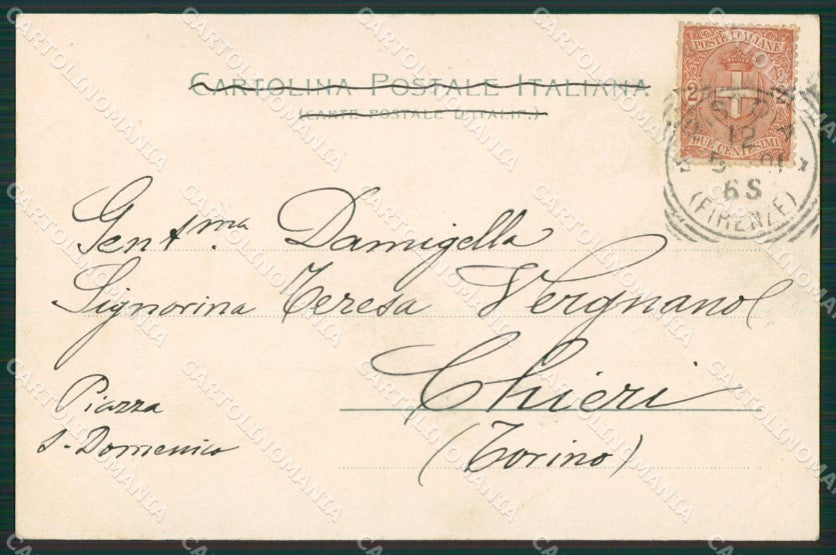 CARTOLINA POSTALE ITALIANA
(CARTE POSTALE D'ITALIE.)
POSTE ITALIANE
2 2
DUE CENTESIMI
12
6 S
(FIRENZE)
Gent.ma Damigella
Signorina Teresa Vergnano
Chieri
(Torino)
Piazza
S. Domenico
CARTOLINOMANIA